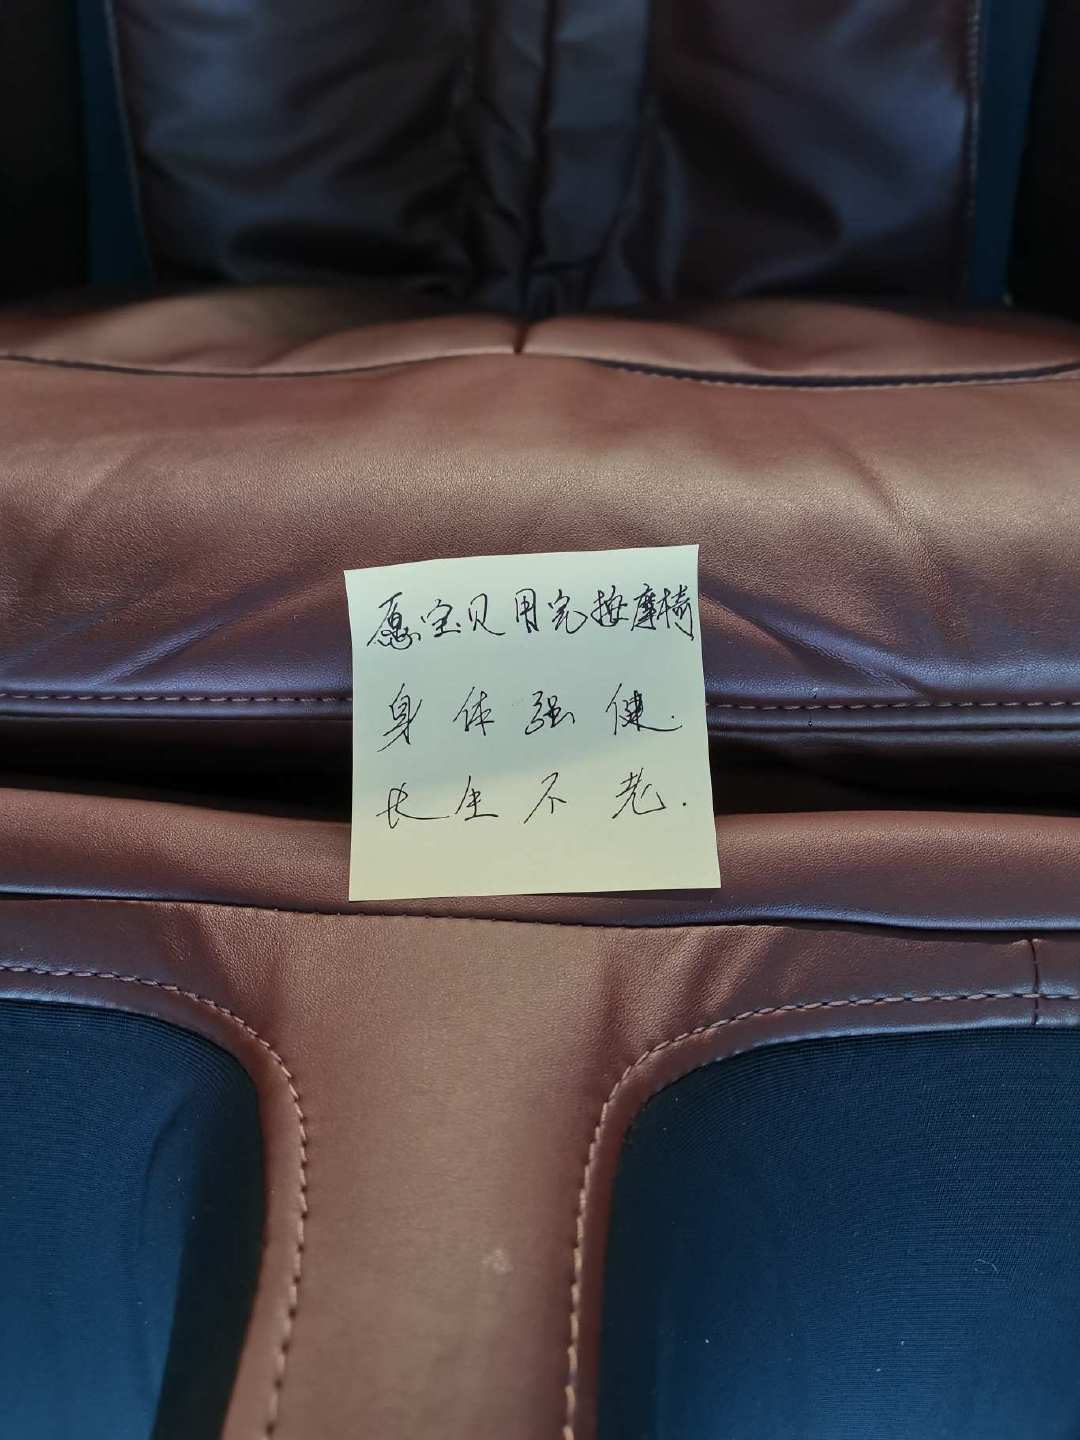 愿宝贝用完按摩椅
身体强健.
长生不老.